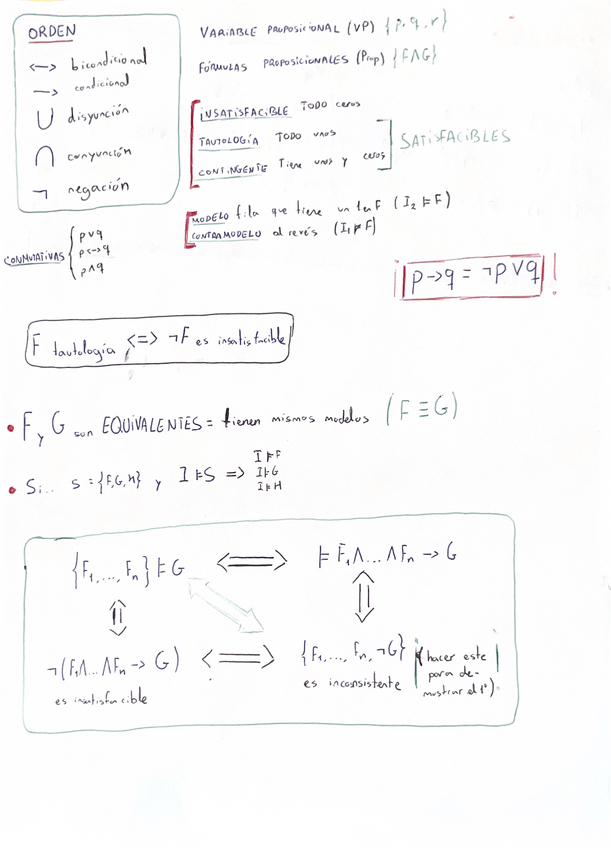 ORDEN
<-> bicondicional
-> condicional
∪ disyunción
∩ conyunción
¬ negación
VARIABLE PROPOSICIONAL (VP) {p,q,r}
FÓRMULAS PROPOSICIONALES (Prop) {F∧G}
INSATISFACIBLE TODO ceros
TAUTOLOGÍA TODO unos
CONTINGENTE Tiene unos y ceros
SATISFACIBLES
MODELO fila que tiene un 1 en F (I₂ ⊨ F)
CONTRAMODELO al revés (I₁ ⊭ F)
CONMUTATIVAS
p∨q
p<->q
p∧q
¡ p->q = ¬p∨q !
F tautología <=> ¬F es insatisfacible
• F y G son EQUIVALENTES = tienen mismos modelos (F≡G)
• Si... S = {F,G,H} y I⊨S =>
I⊨F
I⊨G
I⊨H
{F₁,..., Fₙ} ⊨ G <=> ⊨ F₁∧...∧Fₙ -> G
¬(F₁∧...∧Fₙ -> G) <=> {F₁,..., Fₙ, ¬G}
es insatisfacible
es inconsistente
(hacer este
para de-
mostrar el 1º)